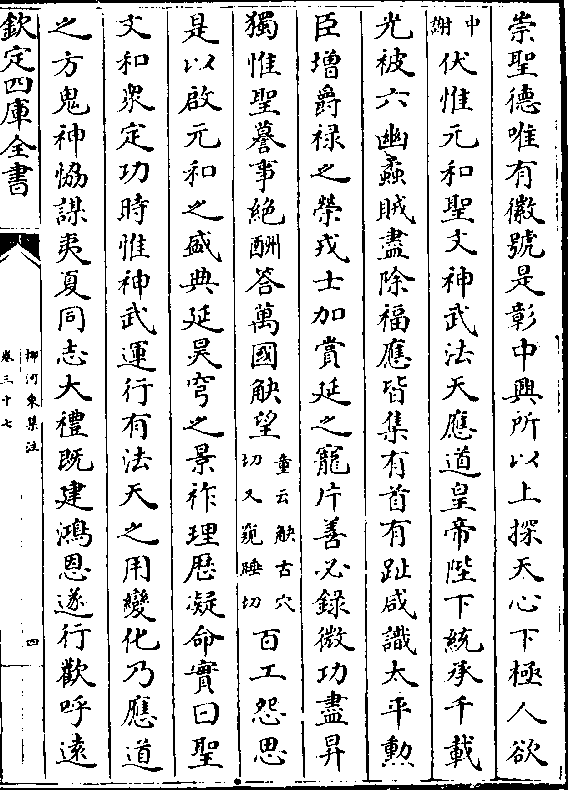 崇聖德唯有徽號是彰中興所以上探天心下極人欲
中謝伏惟元和聖文神武法天應道皇帝陛下統承千載
光被六幽蟊賊盡除福應皆集有首有趾咸識太平勲
臣増爵禄之榮戎士加賞延之寵片善必録微功盡昇
獨惟聖謩事絶酬答萬國觖望童云觖古穴切又窺睡切百工怨思
是以啟元和之盛典延昊穹之景祚理厯凝命實曰聖
文和衆定功時惟神武運行有法天之用變化乃應道
之方鬼神恊謀夷夏同志大禮既建鴻恩遂行歡呼逺
欽定四庫全書
柳河東集注
卷三十七
四